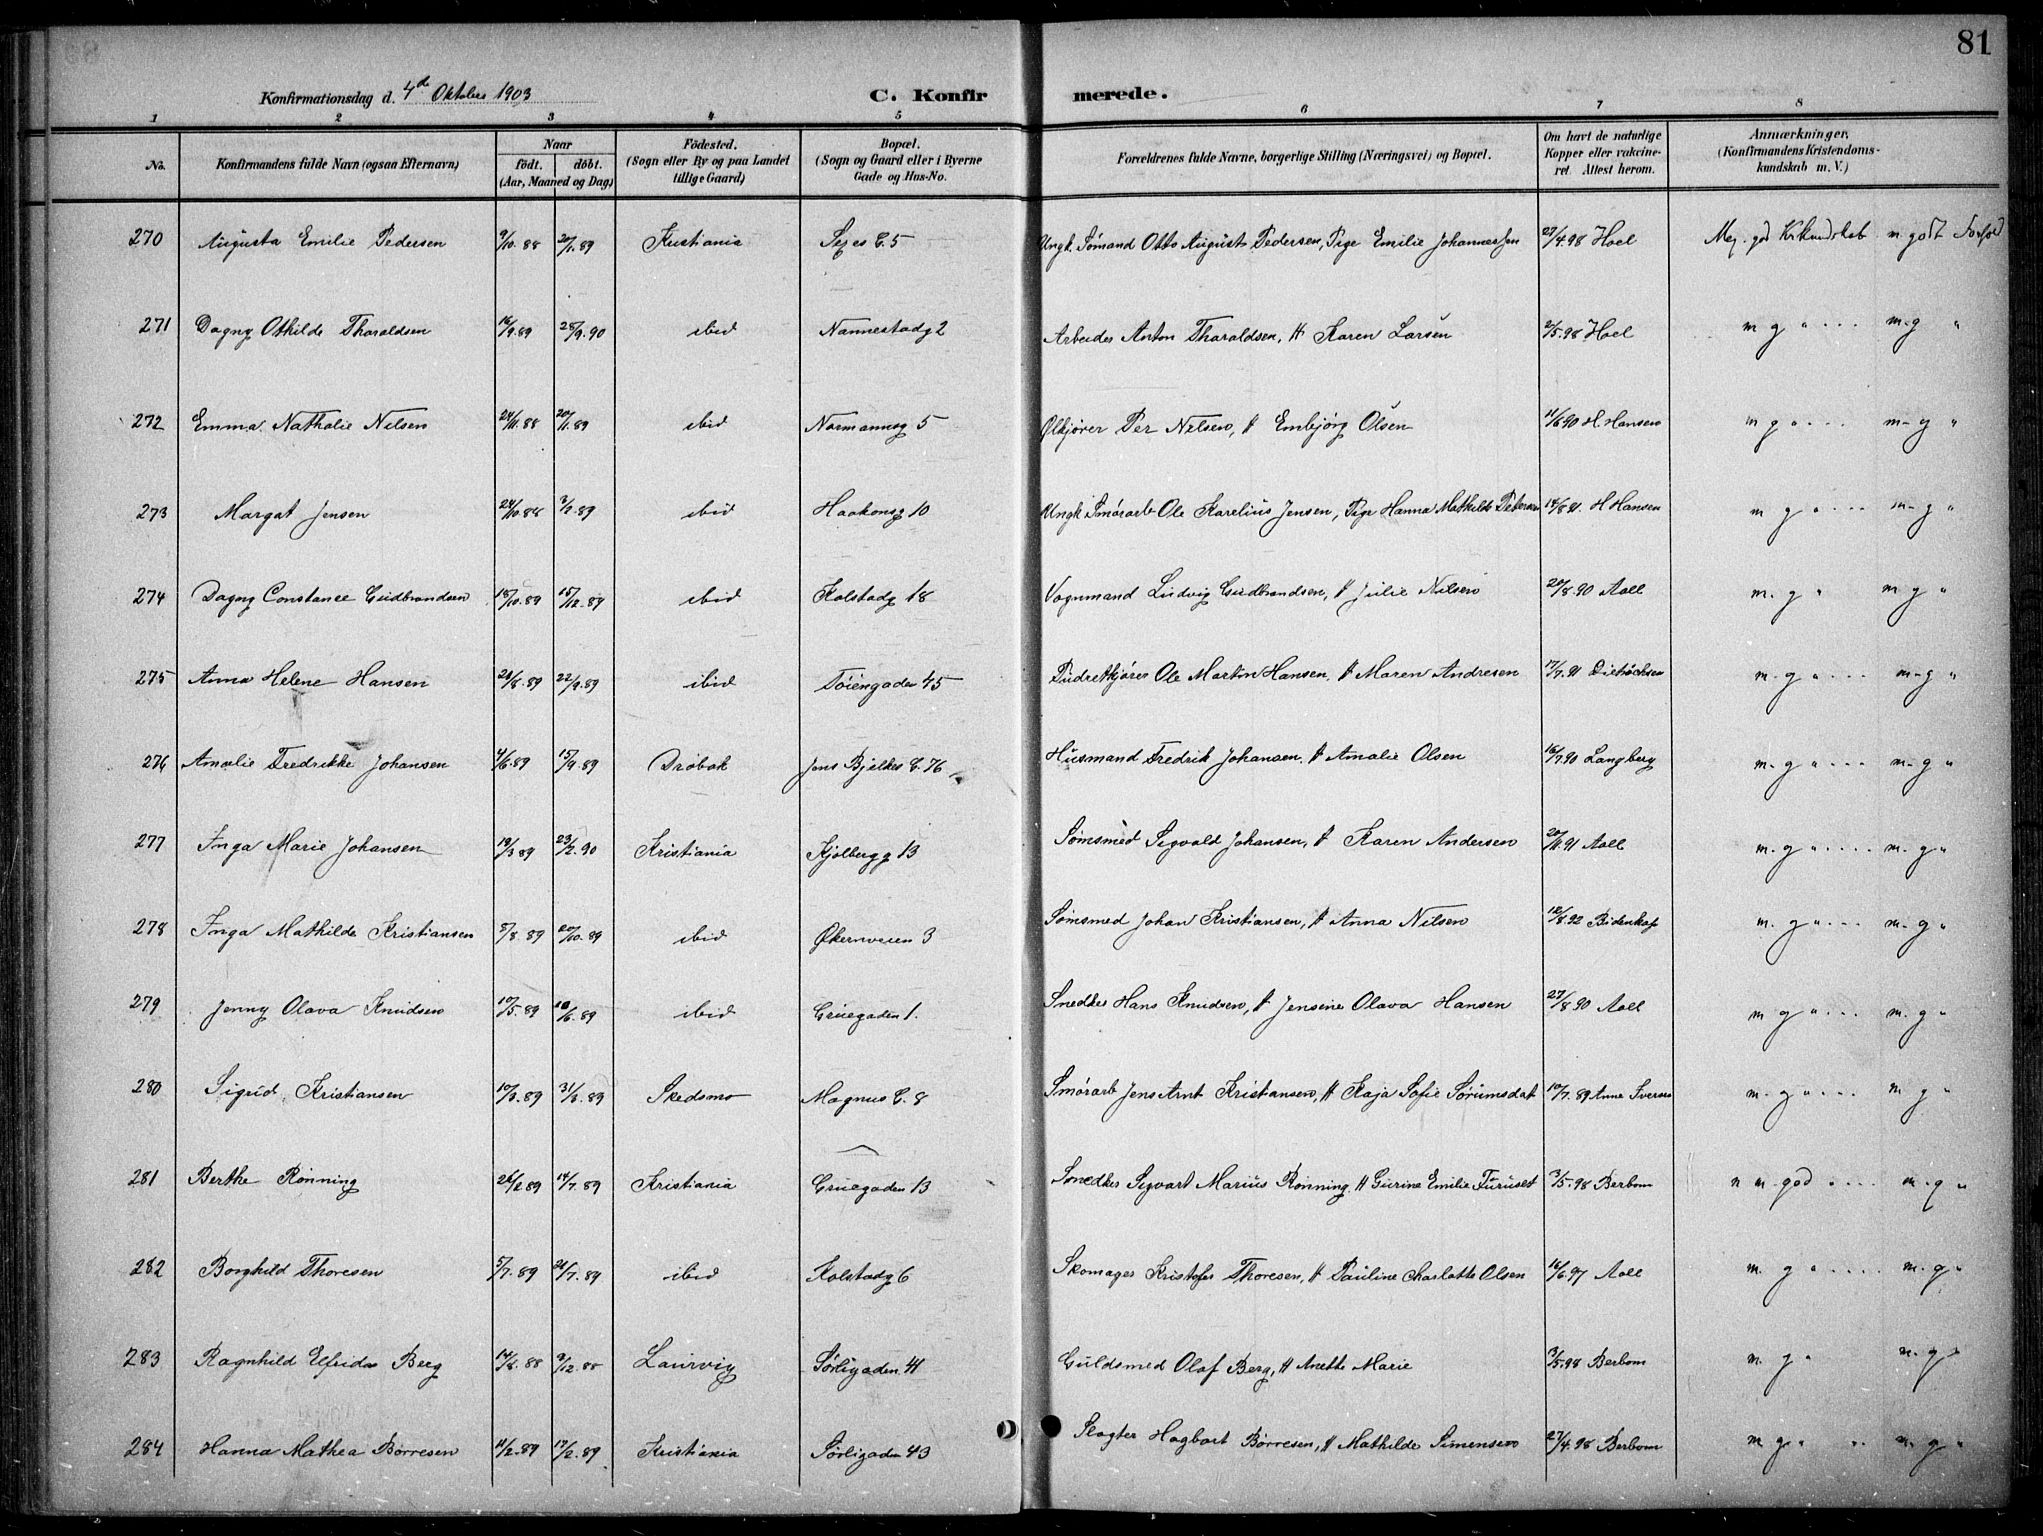 81
Konfirmationsdag d. 4de Oktober 1903 C. Konfirmerede.
1 2 3 4 5 6 7 8
No. Konfirmandens fulde Navn (ogsaa Efternavn) Naar født. døbt. (Aar, Maaned og Dag) Fødested. (Sogn eller By og paa Landet tillige Gaard) Bopæl. (Sogn og Gaard eller i Byerne Gade og Hus-No. Forældrenes fulde Navne, borgerlige Stilling (Næringsvei) og Bopæl. Om havt de naturlige Kopper eller vakcineret. Attest herom. Anmærkninger. (Konfirmandens Kristendomskundskab m. V.)
270 Augusta Emilie Pedersen 9/10.88 20/1.89 Kristiania Sejes G. 5 Ungk. Sømand Otto August Pedersen, Pige Emilie Johannessen 29/4.98 Hoel Meg. god Kr.kundskab m. godt Forhold
271 Dagny Othilde Tharaldsen 16/9.89 28/9.90 ibid Nannestadg 2 Arbeider Anton Tharaldsen, H Karen Larsen 2/5.98 Hoel m g " . . . m-g "
272 Emma Nathalie Nilsen 24/11.88 20/1.89 ibid Normannsg 5 Ølkjører Per Nilsen, H Embjørg Olsen 11/6 90 H. Hansen m g " . . . m-g "
273 Margat Jensen 24/10.88 3/2.89 ibid Haakonsg 10 Ungk Smørarb Ole Karelius Jensen, Pige Hanna Mathilde Petersen 14/8 91. H Hansen m g " . . . m-g "
274 Dagny Constance Gudbrandsen 18/10.89 15/12.89 ibid Kolstadg 18 Vognmand Ludvig Gudbrandsen, H Julie Nilsen 20/8.90 Aall m. g " m g "
275 Anna Helene Hansen 28/8.89 22/9.89 ibid Tøiengaden 45 Pudretkjører Ole Martin Hansen, H Maren Andresen 17/7.91 Dietrichsen m. g " . . . m-g "
276 Amalie Fredrikke Johansen 4/6.89 15/9.89 Drøbak Jens Bjelkes G. 76 Husmand Fredrik Johansen, H Amalie Olsen 16/7.90 Langberg m. g " . . . m-g "
277 Inga Marie Johansen 19/3 89 23/2.90 Kristiania Kjølbergg 13 Sømsmed Sigvald Johansen, H Karen Andersen 20/11.91 Aall m. g " . . . . m. g "
278 Inga Mathilde Kristiansen 8/8.89 20/10.89 ibid Økernveien 3 Sømsmed Johan Kristiansen, H Anna Nilsen 12/8.92 Bidenkap m. g " . . . m-g "
279 Jenny Olava Knudsen 10/5.89 10/6.89 ibid Gruegaden 1. Snedker Hans Knudsen, H Jensine Olava Hansen 27/8 90 Aall m g " . . . m. g "
280 Sigrid Kristiansen 10/3.89 31/3.89 Skedsmo Magnus G. 8 Smørarb Jens Arnt Kristiansen, H Kaja Sofie Sørumsdat 10/7.89 Anne Iversen m. g " . . . m g "
281 Berthe Rønning 26/2 89 14/7.89 Kristiania Gruegaden 13 Snedker Sigvart Marius Rønning, H Gurine Emilie Furuset 3/5.98 Berbom n m. god " . . . m. g "
282 Borghild Thoresen 5/7.89 21/7.89 ibid Kolstadg 6 Skomager Kristofer Thoresen, H Pauline Charlotte Olsen 16/6.97 Aall m. g " . . . . m. g "
283 Ragnhild Elfrida Berg 14/8.88 9/12.88 Laurvig Sørligaden 41 Guldsmed Olaf Berg, H Anette Marie 3/5.98 Berbom m. g " m. g "
284 Hanna Mathea Børresen 11/2.89 17/2.89 Kristiania Sørligaden 43 Slagter Hagbart Børresen, H Mathilde Simensen 27/4.98 Berbom m g " " m. g "